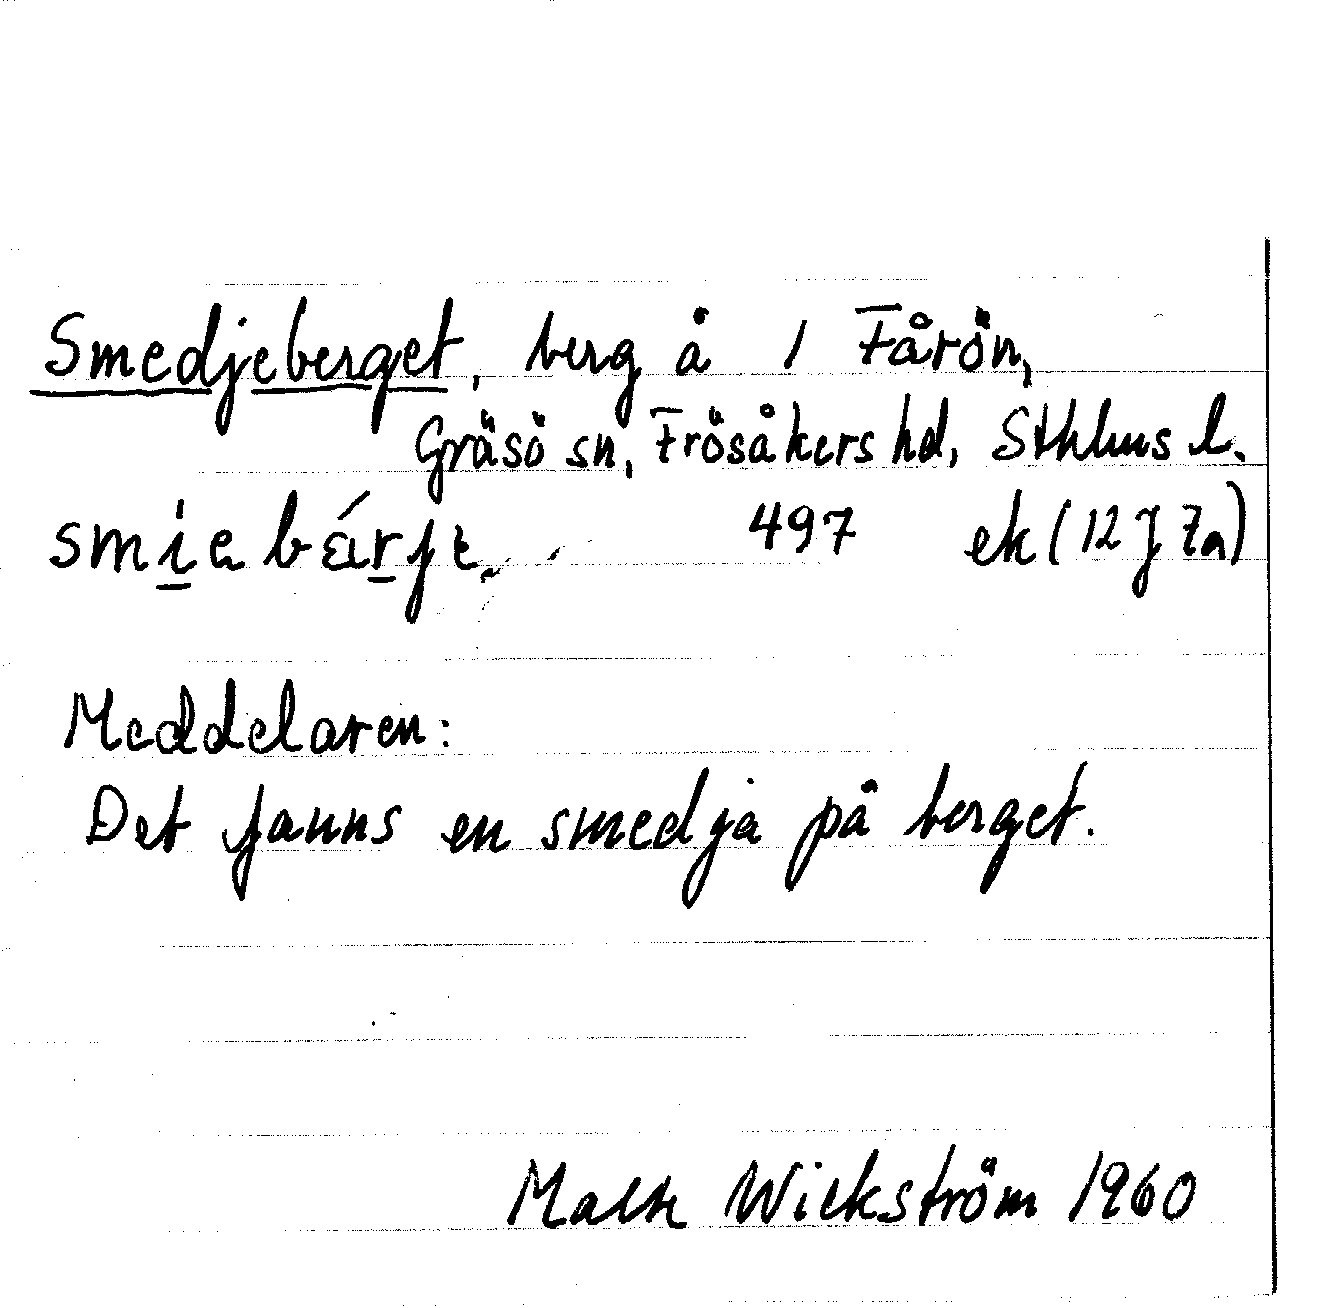 Smedjeberget, berg å 1 Fårön,
Gräsö sn, Frösåkers hd, Sthlms l.
497 ek (12 J 7a)
Meddelaren:
Det fanns en smedja på berget.
Wickström 1960